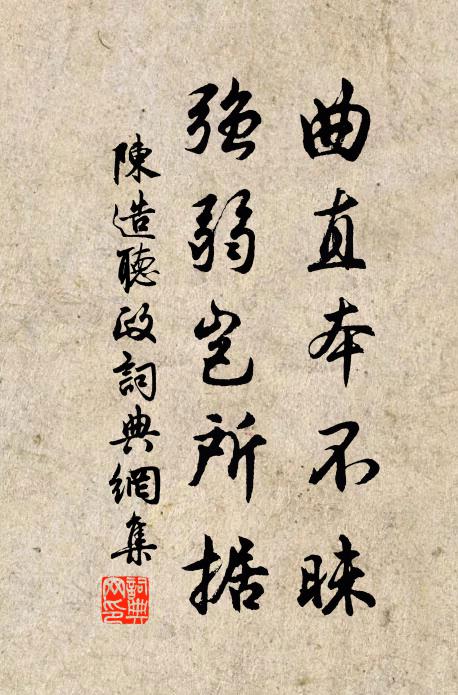 曲直本不昧
強弱岂所据
陳造聽政詞典網集
詞典网印